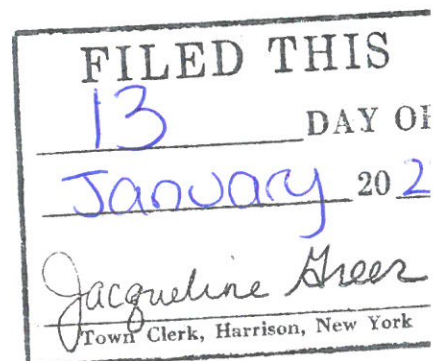 FILED THIS
13 DAY OF
January 20 2
Jacqueline Greer
Town Clerk, Harrison, New York